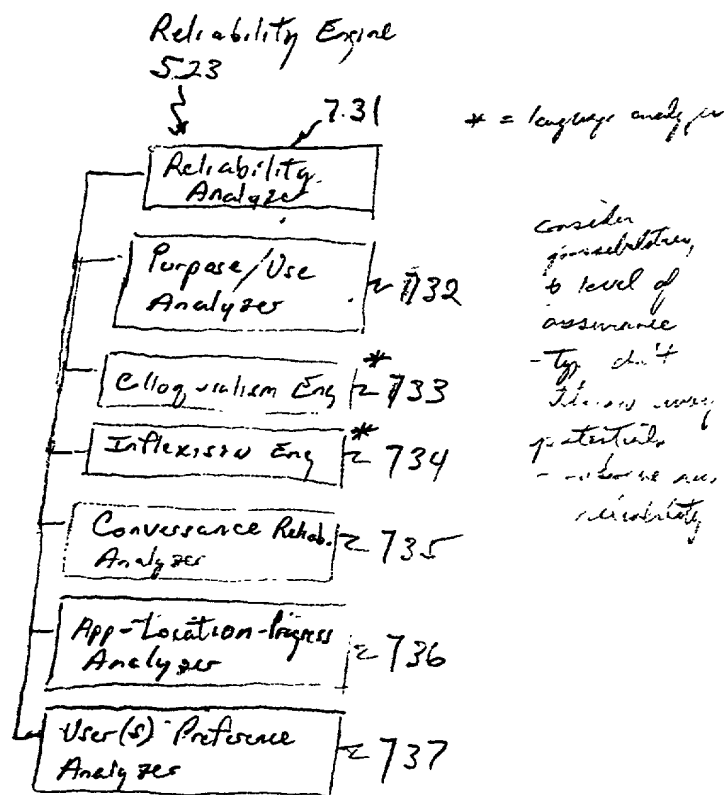 Reliability Engine
523
*
731
* = language analyzer
Reliability
Analyzer
Purpose/Use
Analyzer
732
Colloquialism Eng
*
733
Inflexison Eng
*
734
Conversance Reliab.
Analyzer
735
App-Location-Progress
Analyzer
736
User(s) Preference
Analyzer
737
consider
level of
assurance
- Typ don't
throw away
potentials
reliability